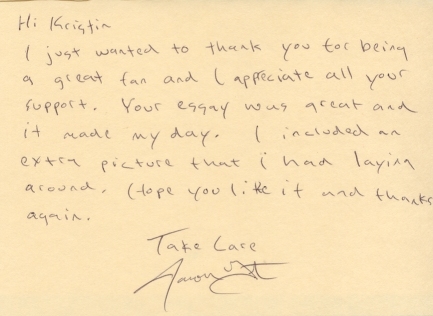 Hi Kristin
I just wanted to thank you for being
a great fan and I appreciate all your
support. Your essay was great and
it made my day. I included an
extra picture that i had laying
around. Hope you like it and thanks
again.
Take Care
Aaron